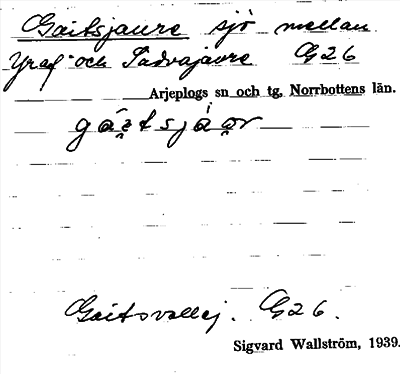 Gaitsjaure sjö mellan
Yraf och Tadvajavre G26
Arjeplogs sn och tg, Norrbottens län.
Gaitsvallej. G26.
Sigvard Wallström, 1939.